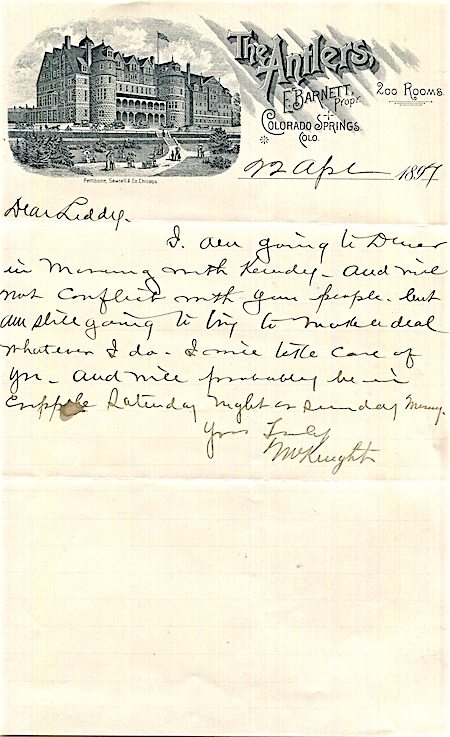 The Antlers,
E. Barnett, Propr.
200 Rooms
Colorado Springs,
Colo.
Pettibone, Sawtell & Co. Chicago.
22 Apl 1897
Dear Leddy.
I am going to Denver
in Morning with - and will
not conflict with your people. but
am still going to try to make a deal
whatever I do - I will take care of
you - and will probably be in
Cripple Saturday night or Sunday Morng.
Yours Truly
McKnight